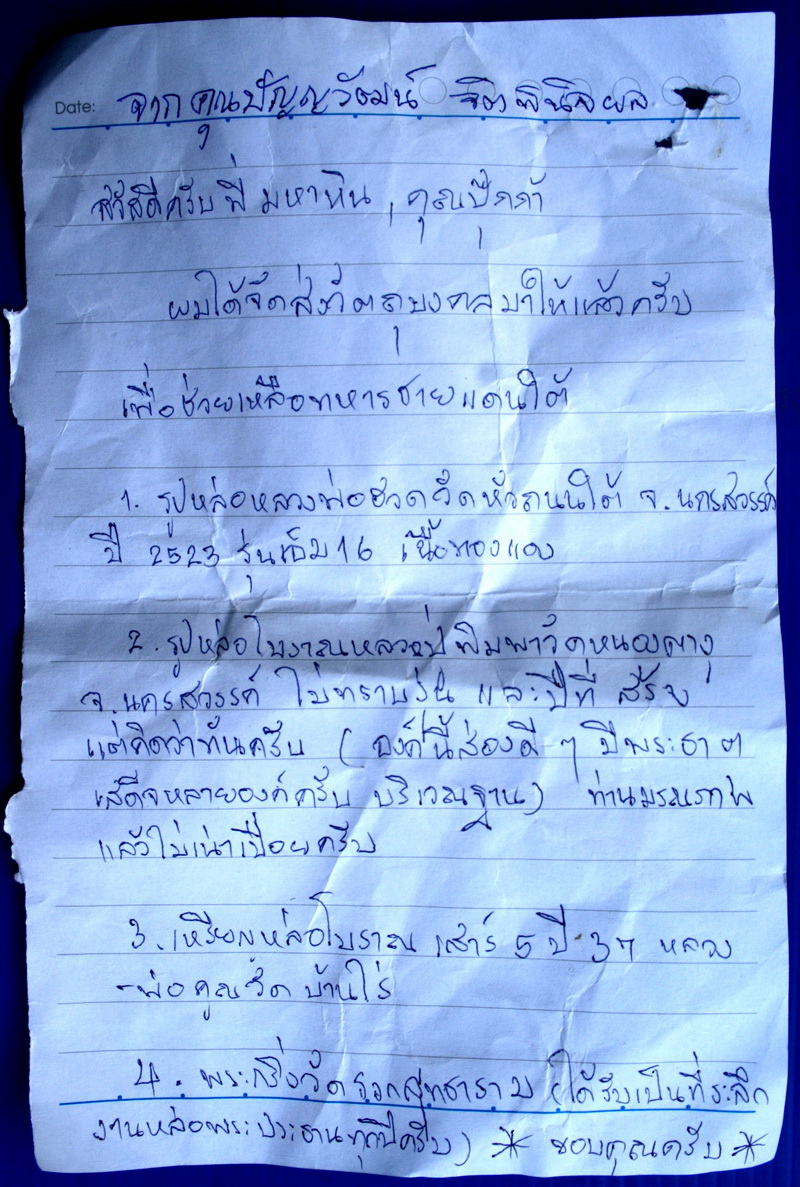 Date: จากคุณปัญญวัฒน์ จิตพินิจยล
สวัสดีครับพี่ มหาหิน, คุณปุ๊กก้า
ผมได้จัดส่งวัตถุมงคลมาให้แล้วครับ
เพื่อช่วยเหลือทหารชายแดนใต้
1. รูปหล่อหลวงพ่อฮวดวัดหัวถนนใต้ จ.นครสวรรค์
ปี 2523 รุ่นเข็ม 16 เนื้อทองแดง
2. รูปหล่อโบราณหลวงปู่พิมพาวัดหนองตางู
จ.นครสวรรค์ ไม่ทราบรุ่น และปีที่ สร้าง
แต่คิดว่าทันครับ (องค์นี้ส่องดี ๆ มีพระธาตุ
เสด็จหลายองค์ครับ บริเวณฐาน) ท่านมรณภาพ
แล้วไม่เน่าเปื่อยครับ
3. เหรียญหล่อโบราณ เสาร์ 5 ปี 37 หลวง
-พ่อคูณวัดบ้านไร่
4. พระกริ่งวัดรวกสุทธาราม (ได้รับเป็นที่ระลึก
งานหล่อพระประธานทุกปีครับ) * ขอบคุณครับ *